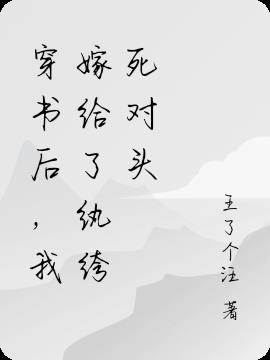 穿书后，我
嫁给了纨绔
死对头
王了个汪 著